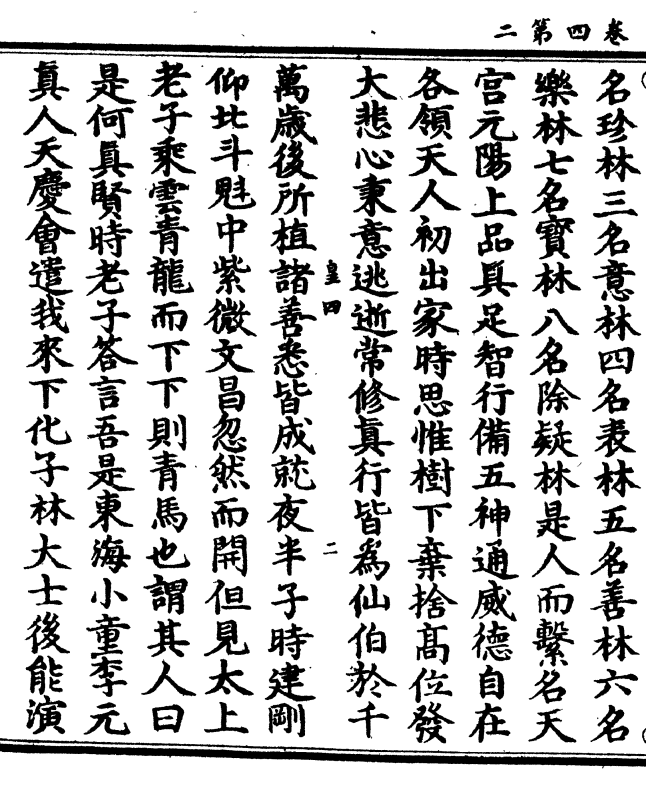 二第四卷
名珍林三名意林四名表林五名善林六名
樂林七名寶林八名除疑林是人而繫名天
宫元陽上品具足智行備五神通威德自在
各領天人初出家時思惟樹下棄捨高位發
大悲心秉意逃逝常修眞行皆為仙伯於千
皇四
二
萬歲後所植諸善悉皆成就夜半子時建剛
仰北斗魁中紫微文昌忽然而開但見太上
老子乘雲青龍而下下則青馬也謂其人曰
是何眞賢時老子答言吾是東海小童李元
眞人天慶會遣我來下化子林大士後能演